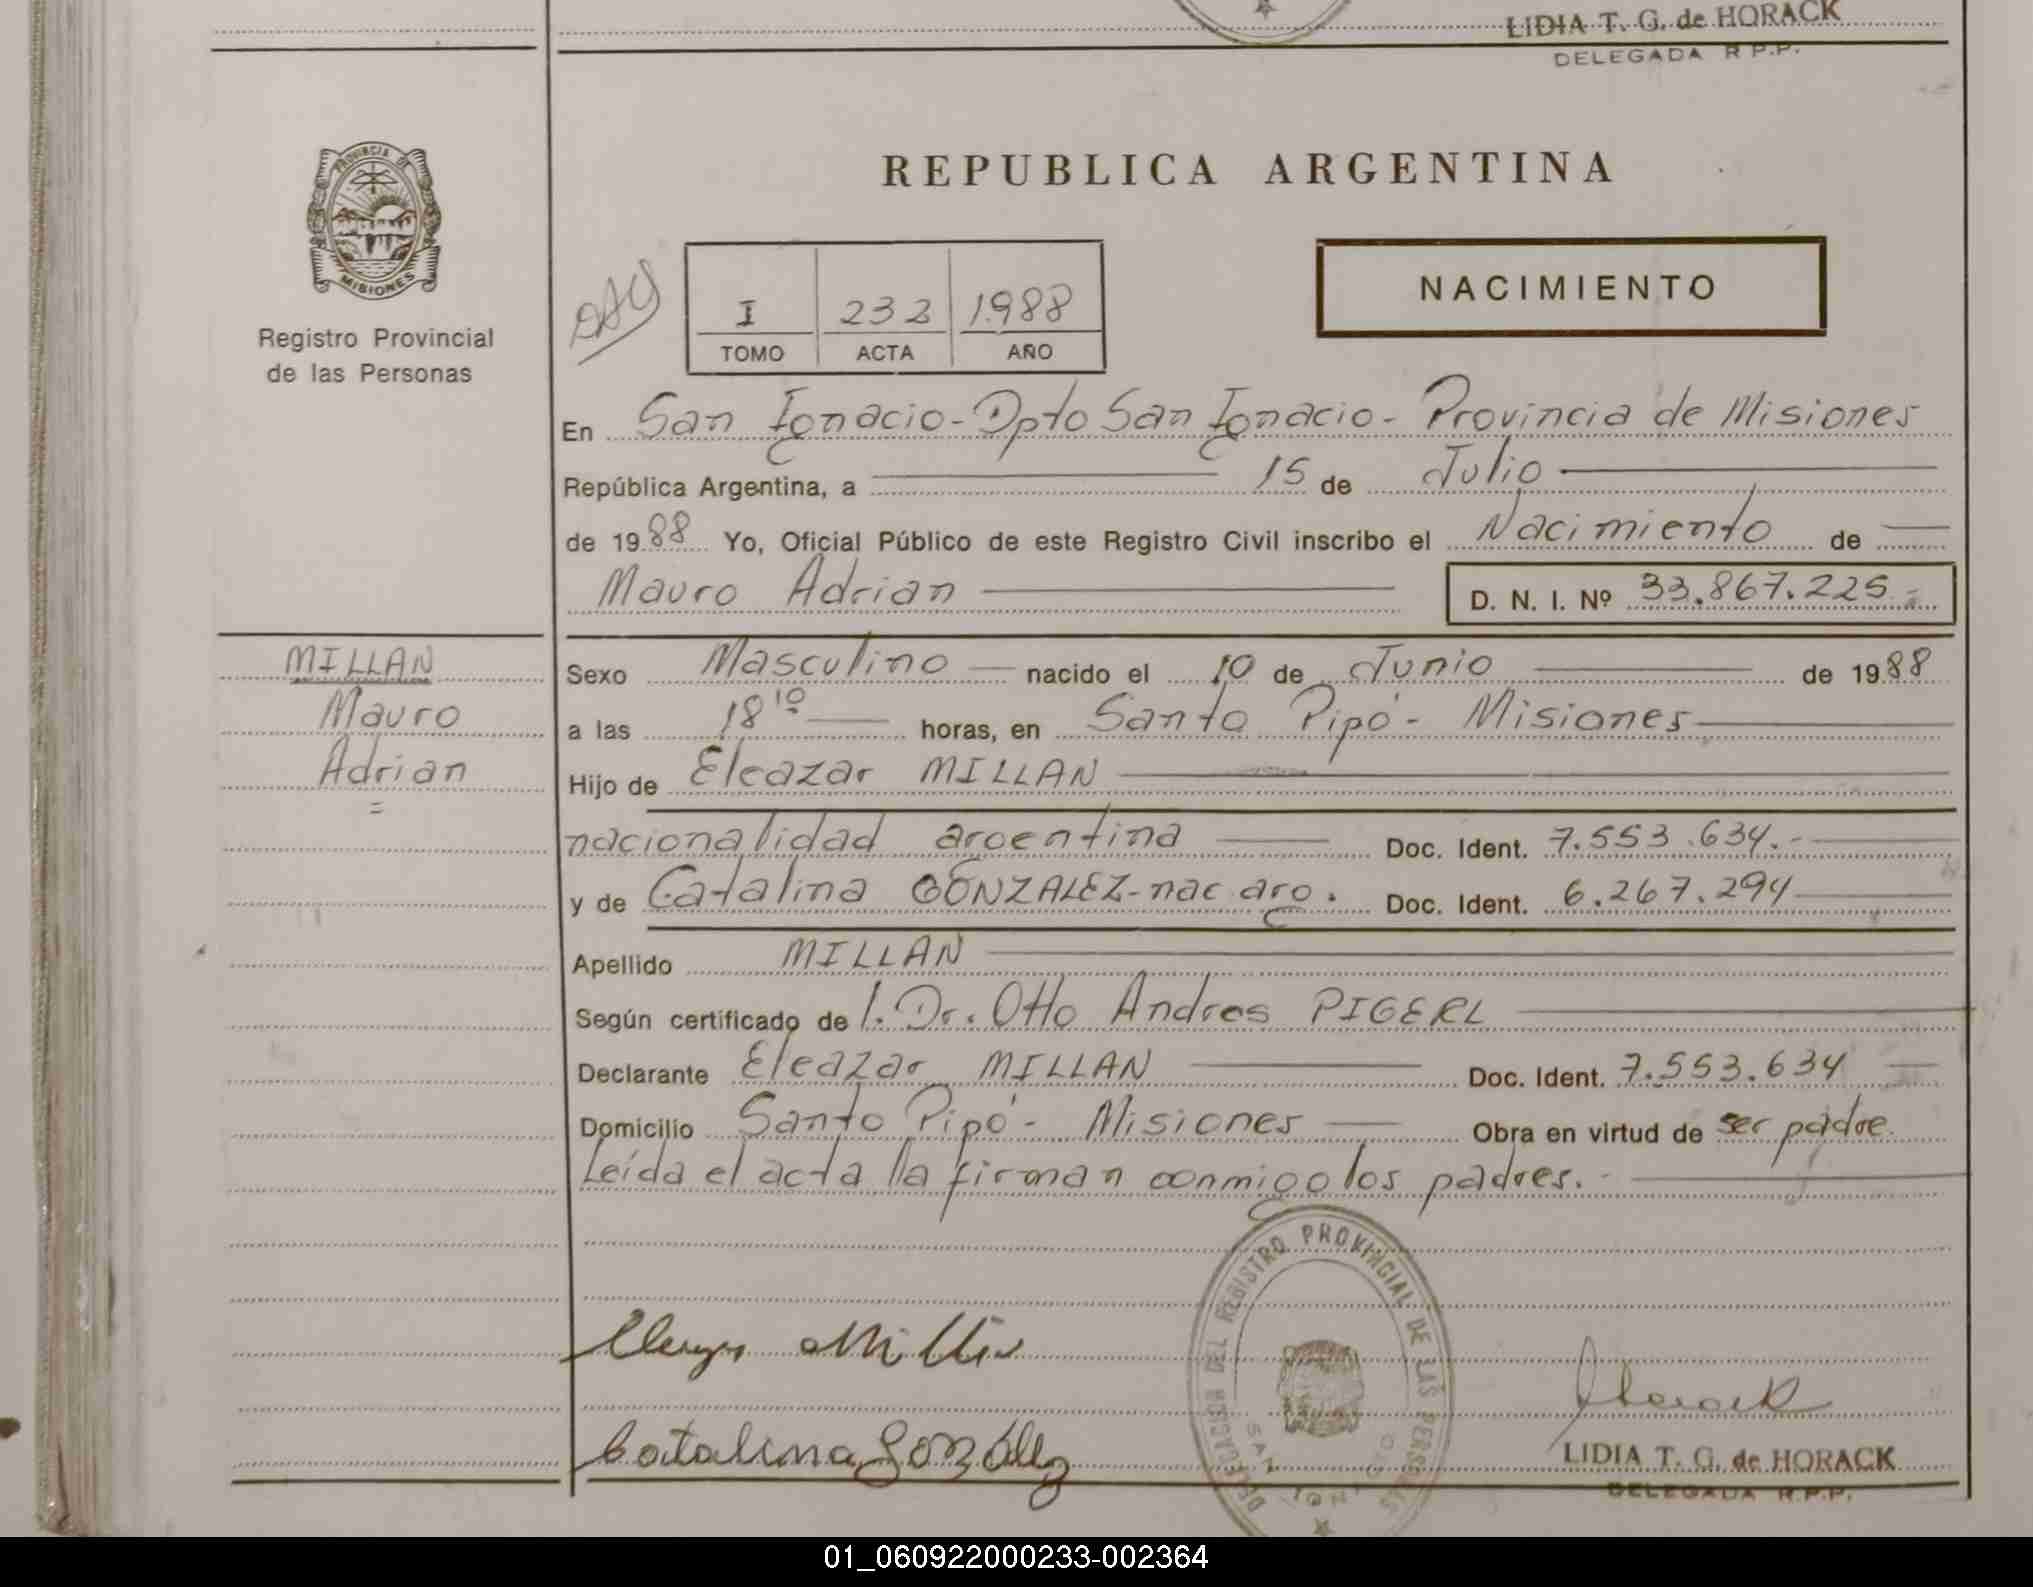 LIDIA T. G. de HORACK
DELEGADA R P.P.
PROVINCIA DE
MISIONES
Registro Provincial
de las Personas
REPUBLICA ARGENTINA
I 232 1988
TOMO ACTA AÑO
NACIMIENTO
En San Ignacio - Dpto San Ignacio - Provincia de Misiones
República Argentina, a 15 de Julio
de 1988 Yo, Oficial Público de este Registro Civil inscribo el Nacimiento de
Mauro Adrian D. N. I. Nº 33.867.225.-
MILLAN
Mauro
Adrian
=
Sexo Masculino nacido el 10 de Junio de 1988
a las 18¹⁰ horas, en Santo Pipó - Misiones
Hijo de Eleazar MILLAN
nacionalidad argentina Doc. Ident. 7.553.634.-
y de Catalina GONZALEZ - nac arg. Doc. Ident. 6.267.294
Apellido MILLAN
Según certificado de l. Dr. Otto Andres PIGERL
Declarante Eleazar MILLAN Doc. Ident. 7.553.634
Domicilio Santo Pipó - Misiones Obra en virtud de ser padre
Leída el acta la firman conmigo los padres.-
DELEGACION DEL REGISTRO PROVINCIAL DE LAS PERSONAS
SAN IGNACIO
Millan
Horack
Catalina González
LIDIA T. G. de HORACK
DELEGADA R.P.P.
01_060922000233-002364